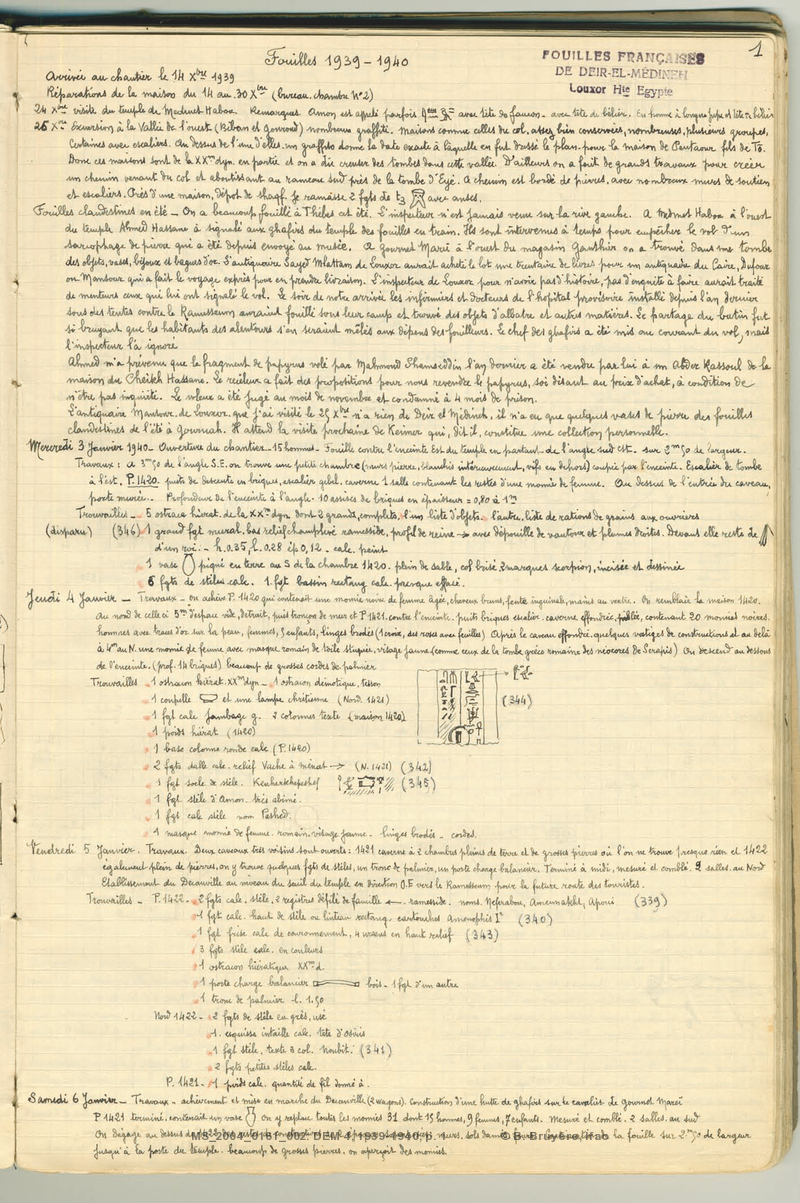 1
Fouilles 1939-1940
FOUILLES FRANÇAISES
DE DEIR-EL-MÉDINEH
Louxor Hte Egypte
Arrivée au chantier le 14 Xbre 1939
Réparations de la maison du 14 au 30 Xbre (bureau. chambre N°2)
24 Xbre visite du temple de Medinet-Habou. Remarques. Amon est appelé parfois avec tête de faucon - avec tête de bélier. En homme à longue jupe et tête de bélier
25 Xbre Excursion à la Vallée de l'ouest (Biban el Gouroud) nombreux graffiti. Maisons comme celles du col, assez bien conservées, nombreuses, plusieurs groupes,
Certaines avec escaliers. Au dessus de l'une d'elles un graffito donne la date exacte à laquelle en fut dressé le plan pour la maison de Pentaour fils de
Donc ces maisons sont de la XXe dyn. en partie et on a dû creuser des tombes dans cette vallée. D'ailleurs on a fait de grands travaux pour créer
un chemin venant du col et aboutissant au rameau sud près de la tombe d'Eyé. Ce chemin est bordé de pierres, avec nombreux murs de soutien
et escaliers. Près d'une maison, dépôt de shaqf. Je ramasse 2 fgts de avec anses.
Fouilles clandestines en été - On a beaucoup fouillé à Thèbes cet été. L'inspecteur n'est jamais venu sur la rive gauche. A Medinet Habou à l'ouest
du temple Ahmed Hassane a signalé aux ghafirs du temple des fouilles en train. Ils sont intervenus à temps pour empêcher le vol d'un
sarcophage de pierre qui a été depuis envoyé au musée. A Gournet Mareï à l'ouest du magasin Gauthier on a trouvé dans une tombe
des objets, vases, bijoux et bagues d'or. L'antiquaire Sayet Mlattam de Louxor aurait acheté le lot une trentaine de livres pour un antiquaire du Caire, Dufour
ou Mansour qui a fait le voyage exprès pour en prendre livraison. L'inspecteur de Louxor pour n'avoir pas d'histoire, pas d'enquête à faire aurait traité
de menteurs ceux qui lui ont signalé le vol. Le soir de notre arrivée les infirmiers et docteurs de l'hôpital provisoire installé depuis l'an dernier
sous des tentes contre le Ramesseum auraient fouillé sous leur camp et trouvé des objets d'albâtre et autres matières. Le partage du butin fut
si bruyant que les habitants des alentours s'en seraient mêlés aux dépens des fouilleurs. Le chef des ghafirs a été mis au courant du vol, mais
l'inspecteur l'a ignoré
Ahmed m'a prévenu que le fragment de papyrus volé par Mahmoud Shamseddin l'an dernier a été vendu par lui à un Abdor Rassoul de la
maison du Cheikh Hassane. Le recéleur a fait des propositions pour nous revendre le papyrus, soi disant au prix d'achat, à condition de
n'être pas inquiété. Le voleur a été jugé au mois de novembre et condamné à 4 mois de prison.
L'antiquaire Mansour, de Louxor, que j'ai visité le 25 Xbre n'a rien de Deir el Médineh, il n'a eu que quelques vases de pierre des fouilles
clandestines de l'été à Gournah. Il attend la visite prochaine de Keimer qui, dit-il, constitue une collection personnelle.
Mercredi 3 Janvier 1940 - Ouverture du chantier - 15 hommes - Fouille contre l'enceinte Est du temple en partant de l'angle sud est. sur 2m50 de largeur.
Travaux : à 3m50 de l'angle S.E. on trouve une petite chambre (murs pierre, blanchis intérieurement, vifs en dehors) coupée par l'enceinte. Escalier de tombe
à l'est. P.1420. puits de descente en briques, escalier gebel. caverne 1 salle contenant les restes d'une momie de femme. Au dessus de l'entrée du caveau,
porte murée. Profondeur de l'enceinte à l'angle - 10 assises de briques en épaisseur = 0,80 à 1m
Trouvailles - 5 ostraca hiérat. de la XXe dyn dont 2 grands, complets, l'un liste d'objets. l'autre, liste de rations de grains aux ouvriers
(disparu) (346) 1 grand fgt mural. bas relief champlevé ramesside, profil de reine → avec dépouille de vautour et plumes droites. Devant elle reste de
d'un roi. - h. 0.35, l. 0.28 ép 0,12 - calc. peint
1 vase piqué en terre au S de la chambre 1420. plein de sable, col brisé 2 marques scorpion, incisée et dessinée
6 fgts de stèles calc. 1 fgt bassin rectang. calc. presque effacé.
Jeudi 4 Janvier - Travaux - on achève P. 1420 qui contenait une momie noire de femme âgée, cheveux bruns, fente inguinale, mains au ventre. On remblaie la maison 1420.
Au nord de celle ci 5m d'espace vide, détruit, puis tronçon de mur et P 1421. contre l'enceinte. puits briques escalier. caverne effondrée, pillée, contenant 20 momies noires.
hommes avec traces d'or sur la peau, femmes, 5 enfants, linges brodés (1 croix, des roses avec feuilles) Après le caveau effondré. quelques vestiges de constructions et au delà
à 4m au N. une momie de femme avec masque romain de toile stuquée, visage jaune (comme ceux de la tombe gréco romaine des néocores de Serapis) On descend au dessous
de l'enceinte. (prof. 14 briques) beaucoup de grosses cordes de palmier
Trouvailles 1 ostracon hiérat. XXe dyn - 1 ostracon démotique, tesson
1 coupelle et une lampe chrétienne (Nord. 1421)
1 fgt calc jambage g. 2 colonnes texte (maison 1420) (344)
1 poids hiérat (1420)
1 base colonne ronde calc (P. 1420)
2 fgts dalle calc. relief Vache à ménat → (N. 1421) (342)
1 fgt socle de stèle. Kenherkhepeshef (345)
1 fgt stèle d'Amon. très abimé.
1 fgt calc stèle nom Pashed.
1 masque momie de femme. romain. visage jaune. linges brodés - cordes.
Vendredi 5 Janvier. Travaux. Deux caveaux très voisins sont ouverts : 1421 caverne à 2 chambres pleines de terre et de grosses pierres où l'on ne trouve presque rien et 1422
également plein de pierres, on y trouve quelques fgts de stèles, un tronc de palmier, un porte charge balancier. Terminé à midi, mesuré et comblé. 2 salles. au Nord
Etablissement du Decauville au niveau du seuil du temple en direction O.E vers le Ramesseum pour la future route des touristes.
Trouvailles - P. 1422. 2 fgts calc. stèle, 2 registres défilé de famille ← ramesside. noms. Neferabou, Amennakht, Apouï (339)
1 fgt calc. haut de stèle ou linteau rectang. cartouches Amenophis Ier (340)
1 fgt frise calc de couronnement, 4 uraeus en haut relief (343)
3 fgts stèle calc. en couleurs
1 ostracon hiératique XXe d.
1 porte charge balancier bois. 1 fgt d'un autre
1 tronc de palmier l. 1.50
Nord 1422 - 2 fgts de stèle en grès, usé
1. esquisse intaille calc. tête d'Osiris
1 fgt stèle, texte 3 col. Noubit. (341)
2 fgts petites stèles calc.
P. 1421 - 1 poids calc. quantité de fil donné à.
Samedi 6 Janvier - Travaux - achèvement et mise en marche du Decauville (2 wagons). Construction d'une hutte de ghafirs sur le cavalier de Gournet Mareï
P 1421 terminé. contenait un vase On y replace toutes les momies 31 dont 15 hommes, 9 femmes, 7 enfants. Mesuré et comblé. 2 salles. au sud
On dégage au dessus de murs. sols dans la fouille sur 2m50 de largeur
MS_2004_0161_002 DEM 4 1939-1940 p. © B. Bruyère, Ifao
jusqu'à la porte du temple. beaucoup de grosses pierres. on aperçoit des momies.